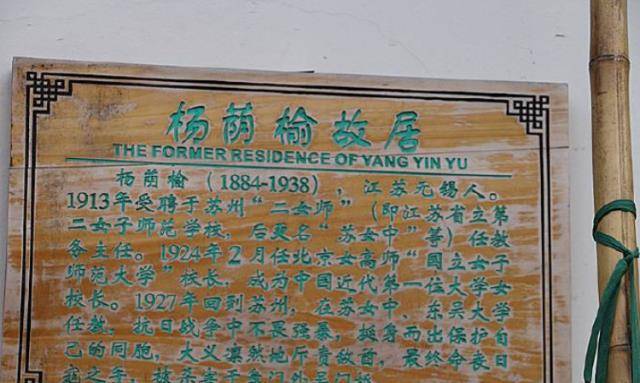 杨荫榆故居
THE FORMER RESIDENCE OF YANG YIN YU
杨荫榆（1884-1938），江苏无锡人。
1913年受聘于苏州“二女师”（即江苏省立第
二女子师范学校，后更名“苏女中”善）任教
务主任。1924年2月任北京女高师“国立女子
师范大学”校长，成为中国近代第一位大学女
校长。1927年回到苏州，在苏女中、东吴大学
任教，抗日战争中不畏强暴，挺身而出保护自
己的同胞，大义凛然地斥责敌酋，最终命丧日
寇之手，被杀害于盘门外吴门桥